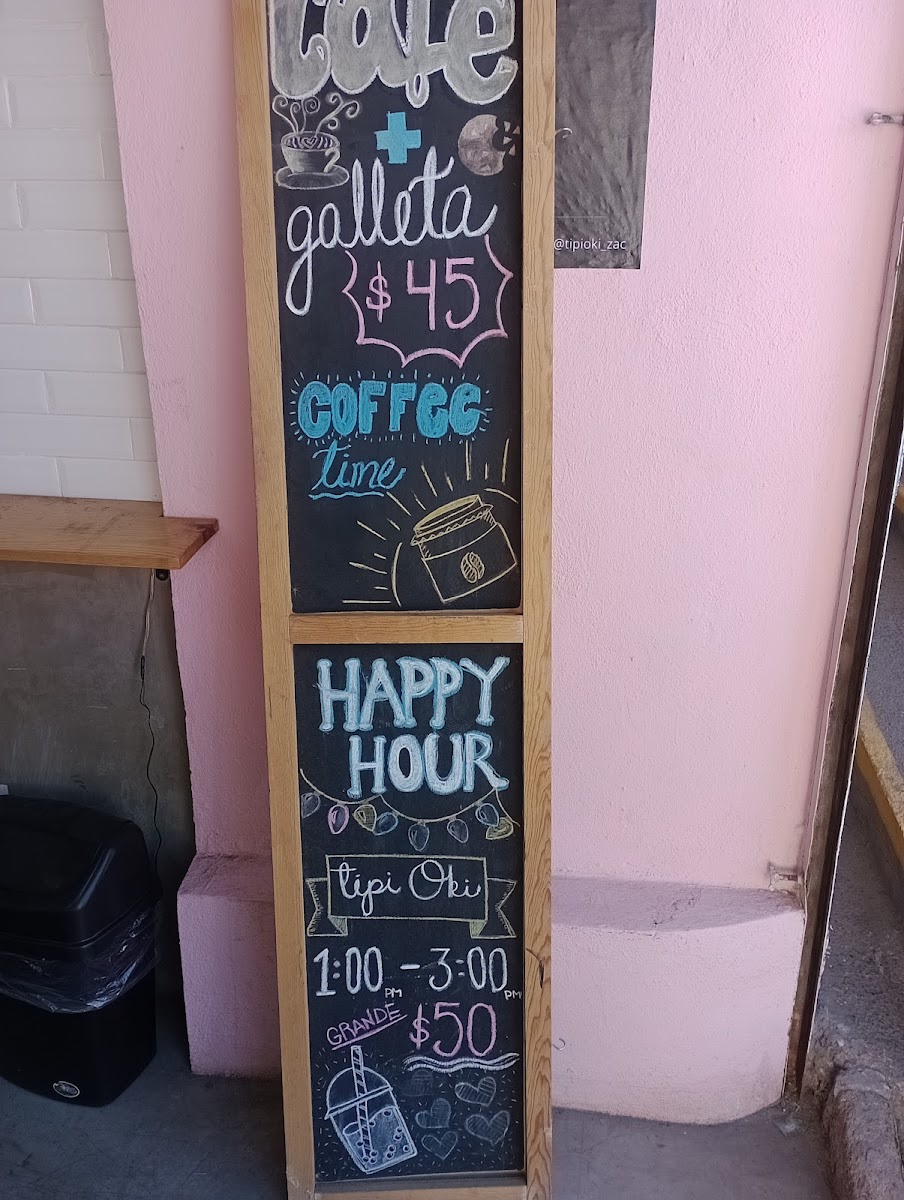 Cafe
galleta
$45
COFFEE
time
HAPPY
HOUR
tipi Oki
1:00 PM - 3:00 PM
GRANDE $50
@tipioki_zac